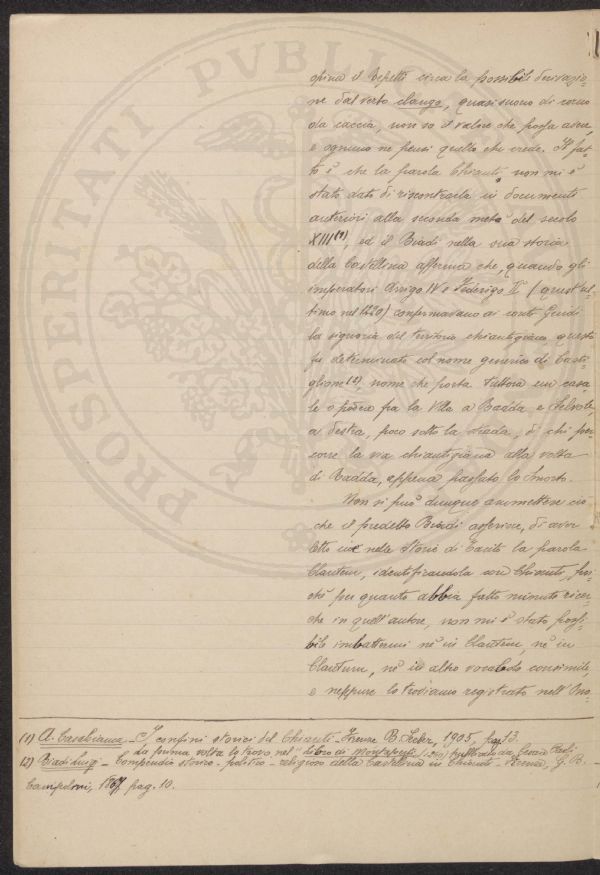 opina il Repetti circa la possibile derivazio-
ne dal verbo clango, quasi suono di corno
da caccia, non so il valore che possa avere,
e ognuno ne pensi quello che crede. Il fat-
to è che la parola Chianti, non mi è
stato dato di riscontrarla in documenti
anteriori alla seconda metà del secolo
XIII(1), ed il Biadi nella sua storia
della Castellina afferma che, quando gli
imperatori Arrigo IV e Federigo II (quest'ul-
timo nel 1220) confermavano ai conti Guidi
la signoria del territorio chiantigiano, questo
fu determinato col nome generico di Casti-
glione(2), nome che porta tuttora un casa
le o podere fra la Villa a Radda e Selvole,
a destra, poco sotto la strada, di chi per-
corre la via chiantigiana alla volta
di Radda, appena passato lo Smorto.
Non si può dunque ammettere ciò
che il predetto Biadi asserisce, di aver
letto nelle Storie di Tacito la parola
Clantum, identificandola con Chianti, poi-
chè per quanto abbia fatto minute ricer-
che in quell'autore, non mi è stato possi-
bile imbattermi nè in Clantum, nè in
nè in altro vocabolo consimile,
e neppure lo troviamo registrato nell'Ono-
(1) A. Casabianca - I confini storici del Chianti - Firenze B. Seeber, 1905, pag. 13.
da prima volta lo trovo nel "Libro di Montaperti" pubblicato da Cesare Paoli
(2) Biadi Luigi - Compendio storico - politico - religioso della Castellina in Chianti - Firenze, G. B.
Campolmi, 1867 pag. 10.
PROSPERITATI PVBLIC